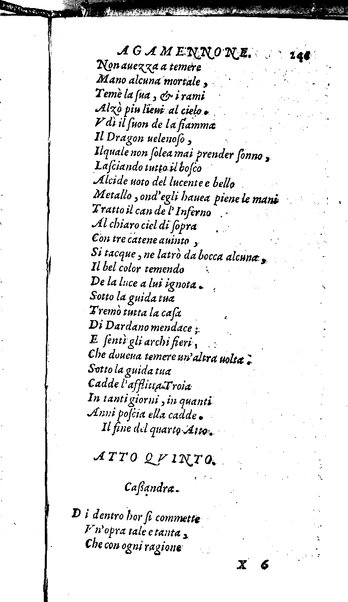 AGAMENNONE. 246
Non auezza a temere
Mano alcuna mortale,
Temè la sua, & i rami
Alzò piu lieui al cielo.
Vdì il suon de la fiamma
Il Dragon uelenoso,
Ilquale non solea mai prender sonno,
Lasciando tutto il bosco
Alcide uoto del lucente e bello
Metallo, ond'egli hauea piene le mani
Tratto il can de l'Inferno
Al chiaro ciel di sopra
Con tre catene auinto,
Si tacque, ne latrò da bocca alcuna,
Il bel color temendo
De la luce a lui ignota.
Sotto la guida tua
Tremò tutta la casa
Di Dardano mendace;
E sentì gli archi fieri,
Che doueua temere un'altra uolta.
Sotto la guida tua
Cadde l'afflitta Troia
In tanti giorni, in quanti
Anni poscia ella cadde.
Il fine del quarto Atto.
ATTO QVINTO.
Cassandra.
Di dentro hor si commette
Vn'opra tale e tanta,
Che con ogni ragione
X 6